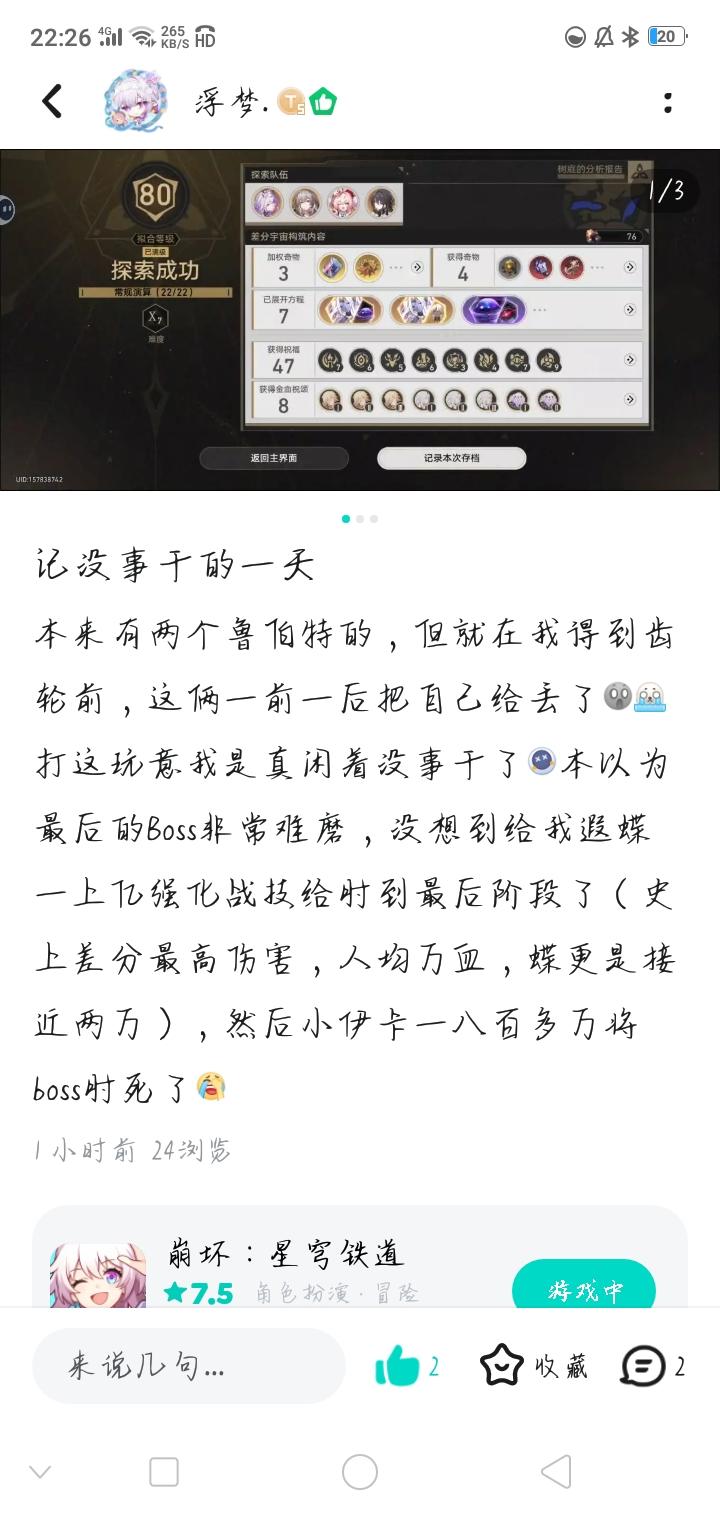 22:26 4G 265 KB/S HD 20
浮梦.
1/3
80
拟合等级
已满级
探索成功
常规演算（22/22）
X7
难度
探索队伍
树庭的分析报告
差分宇宙构筑内容
76
加权奇物
3
获得奇物
4
已展开方程
7
获得祝福
47
获得金血祝颂
8
返回主界面
记录本次存档
UID:157838742
记没事干的一天
本来有两个鲁伯特的，但就在我得到齿
轮前，这俩一前一后把自己给丢了
打这玩意我是真闲着没事干了本以为
最后的Boss非常难磨，没想到给我遐蝶
一上亿强化战技给时到最后阶段了（史
上差分最高伤害，人均万血，蝶更是接
近两万），然后小伊卡一八百多万将
boss时死了
1小时前 24浏览
崩坏：星穹铁道
7.5 角色扮演·冒险
游戏中
来说几句...
2
收藏
2